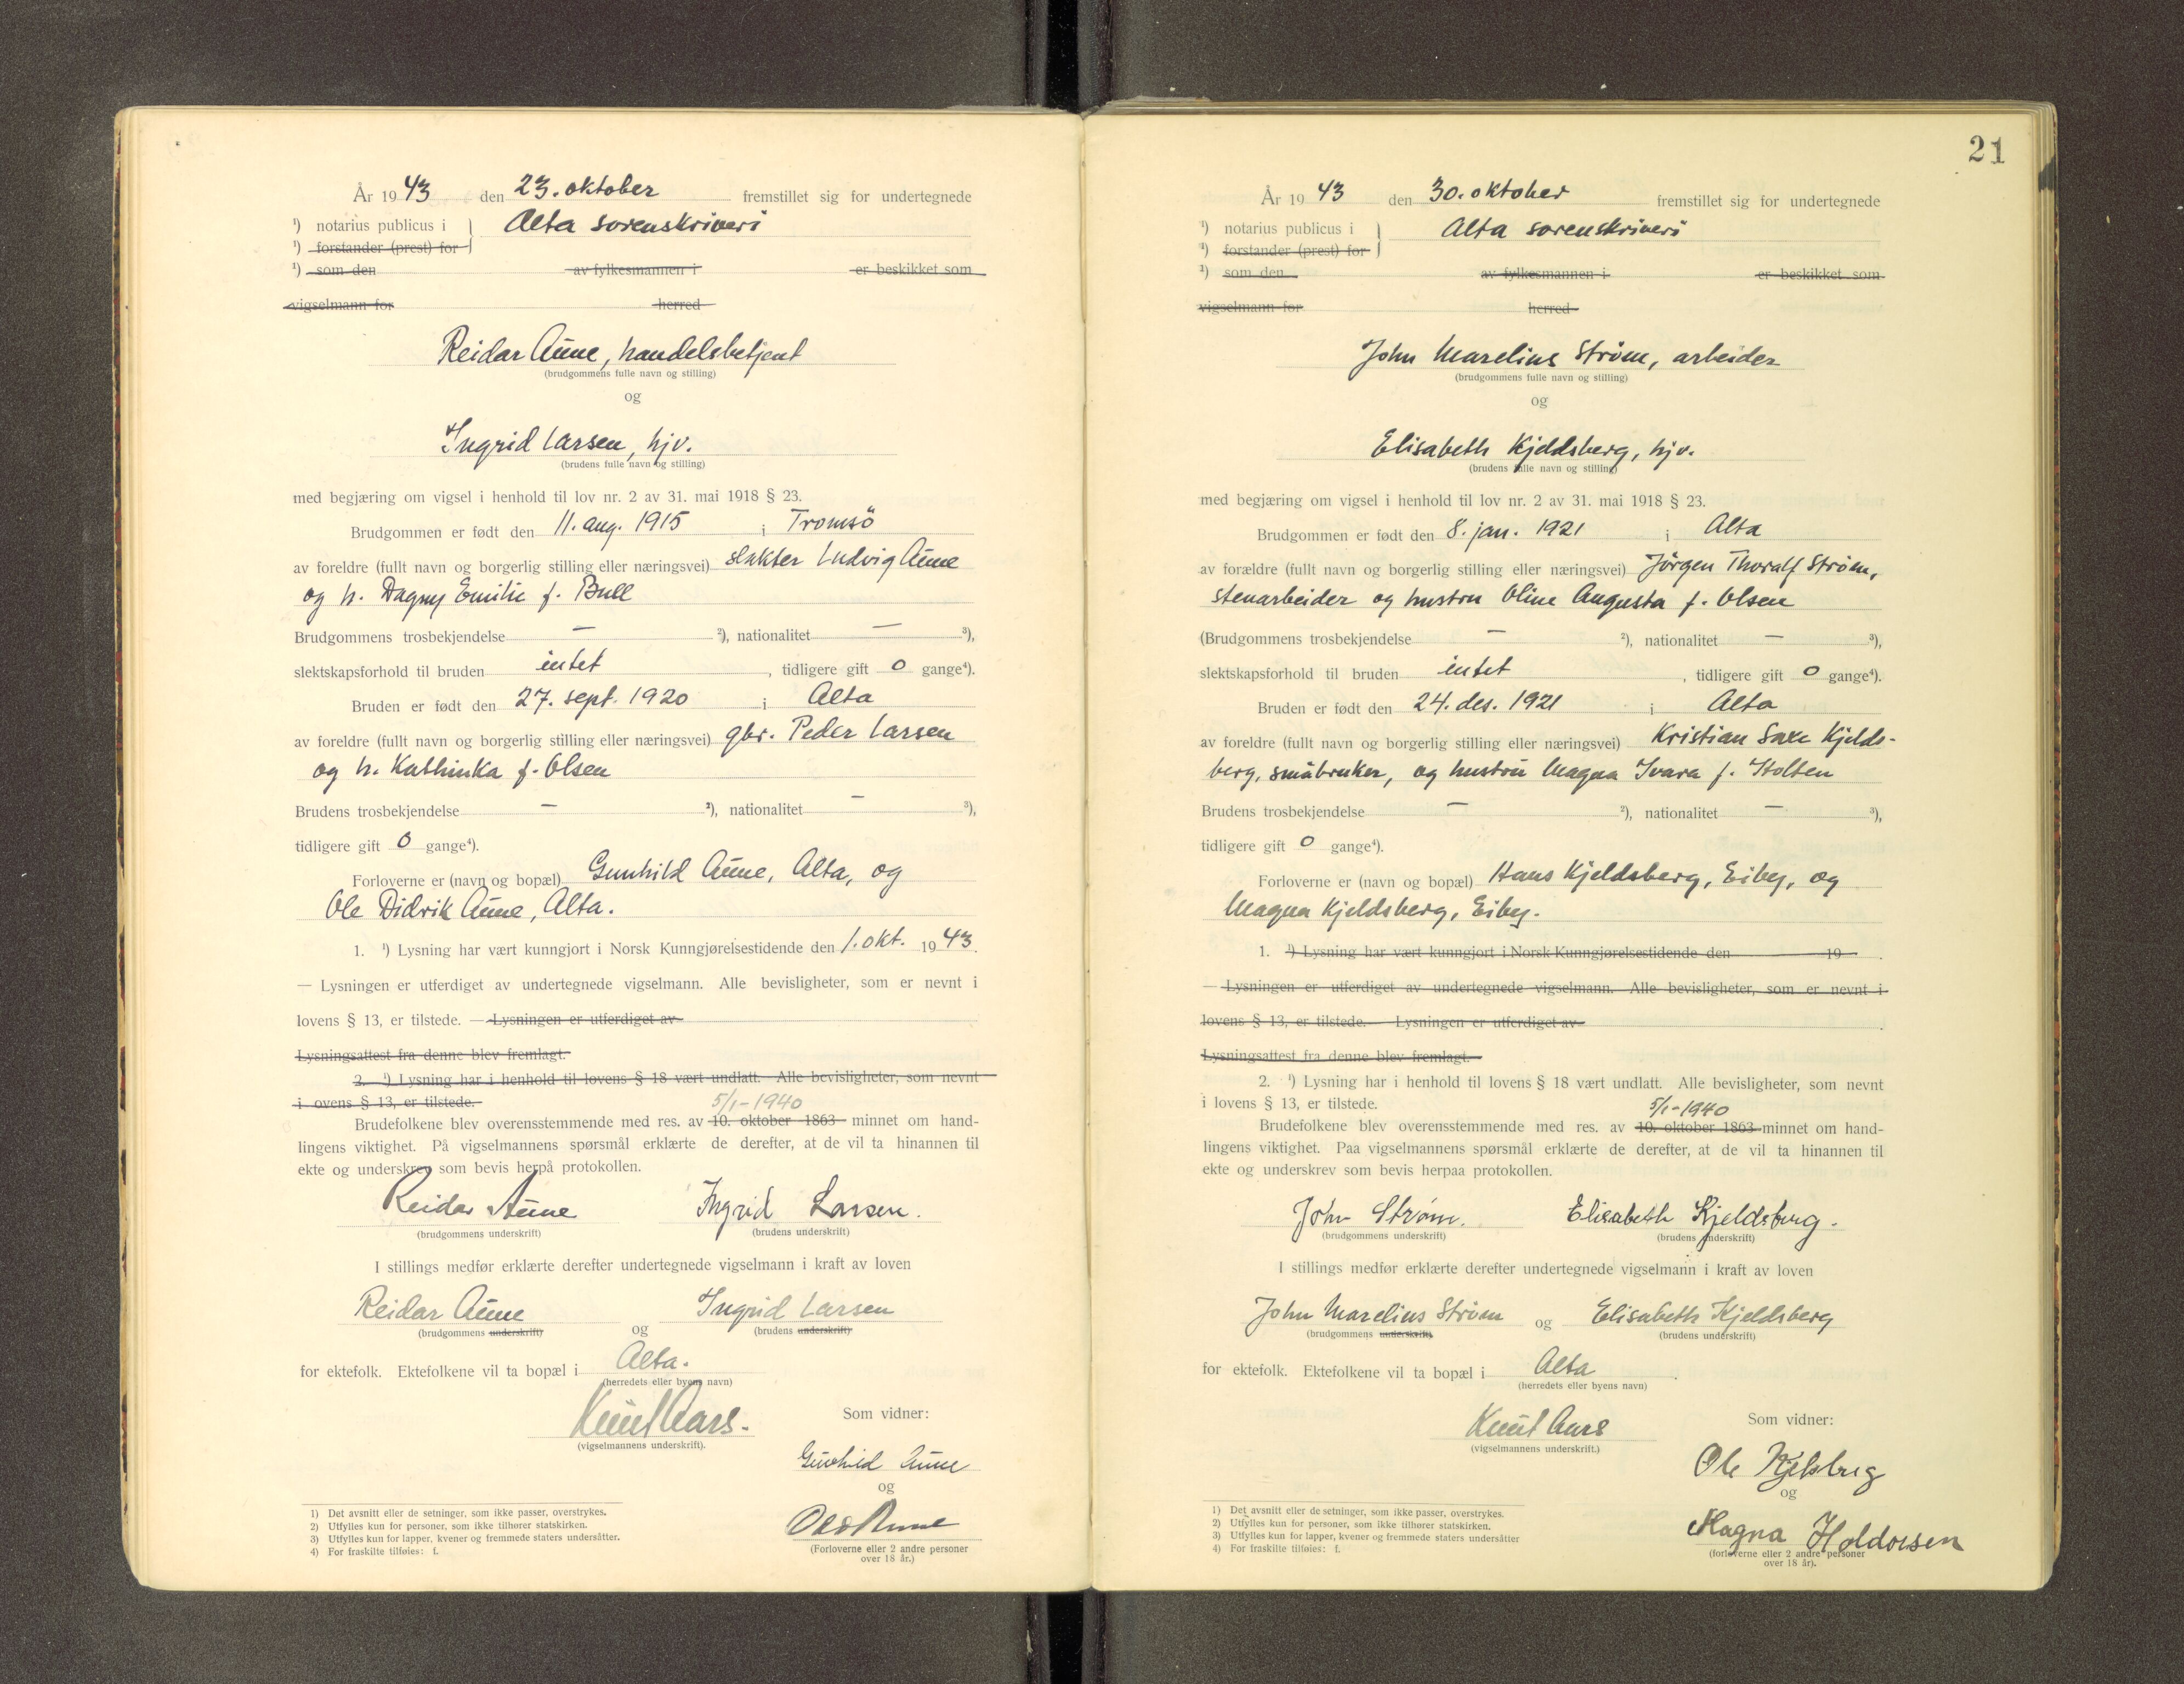 År 1943 den 23. oktober fremstillet sig for undertegnede
¹) notarius publicus i } Alta sorenskriveri
¹) forstander (prest) for
¹) som den av fylkesmannen i er beskikket som
vigselmann for herred
Reidar Aune, handelsbetjent
(brudgommens fulle navn og stilling)
og
Ingrid Larsen, hjv.
(brudens fulle navn og stilling)
med begjæring om vigsel i henhold til lov nr. 2 av 31. mai 1918 § 23.
Brudgommen er født den 11. aug. 1915 i Tromsö
av foreldre (fullt navn og borgerlig stilling eller næringsvei) slakter Ludvig Aune
og h. Dagny Emilie f. Bull
Brudgommens trosbekjendelse — ²), nationalitet — ³),
slektskapsforhold til bruden intet , tidligere gift 0 gange⁴).
Bruden er født den 27. sept. 1920 i Alta
av foreldre (fullt navn og borgerlig stilling eller næringsvei) gbr. Peder Larsen
og h. Kathinka f. Olsen
Brudens trosbekjendelse — ²), nationalitet — ³),
tidligere gift 0 gange⁴).
Forloverne er (navn og bopæl) Gunhild Aune, Alta, og
Ole Didrik Aune, Alta.
1. ¹) Lysning har vært kunngjort i Norsk Kunngjørelsestidende den 1. okt. 1943.
— Lysningen er utferdiget av undertegnede vigselmann. Alle bevisligheter, som er nevnt i
lovens § 13, er tilstede. — Lysningen er utferdiget av
Lysningsattest fra denne blev fremlagt.
2. ¹) Lysning har i henhold til lovens § 18 vært undlatt. Alle bevisligheter, som nevnt
i ovens § 13, er tilstede.
5/1-1940
Brudefolkene blev overensstemmende med res. av 10. oktober 1863 minnet om hand-
lingens viktighet. På vigselmannens spørsmål erklærte de derefter, at de vil ta hinannen til
ekte og underskrev som bevis herpå protokollen.
Reidar Aune Ingrid Larsen.
(brudgommens underskrift) (brudens underskrift)
I stillings medfør erklærte derefter undertegnede vigselmann i kraft av loven
Reidar Aune og Ingrid Larsen
(brudgommens underskrift) (brudens underskrift)
for ektefolk. Ektefolkene vil ta bopæl i Alta.
(herredets eller byens navn)
Knut Aars.
(vigselmannens underskrift).
Som vidner:
Gunhild Aune
og
Ole Aune
(Forloverne eller 2 andre personer
over 18 år.)
1) Det avsnitt eller de setninger, som ikke passer, overstrykes.
2) Utfylles kun for personer, som ikke tilhører statskirken.
3) Utfylles kun for lapper, kvener og fremmede staters undersåtter.
4) For fraskilte tilføies: f.
21
År 1943 den 30. oktober fremstillet sig for undertegnede
¹) notarius publicus i } Alta sorenskriveri
¹) forstander (prest) for
¹) som den av fylkesmannen i er beskikket som
vigselmann for herred
John Marelius Strøm, arbeider
(brudgommens fulle navn og stilling)
og
Elisabeth Kjeldsberg, hjv.
(brudens fulle navn og stilling)
med begjæring om vigsel i henhold til lov nr. 2 av 31. mai 1918 § 23.
Brudgommen er født den 8. jan. 1921 i Alta
av forældre (fullt navn og borgerlig stilling eller næringsvei) Jörgen Thoralf Strøm,
stenarbeider og hustru Oline Augusta f. Olsen
(Brudgommens trosbekjendelse — ²), nationalitet — ³),
slektskapsforhold til bruden intet , tidligere gift 0 gange⁴).
Bruden er født den 24. des. 1921 i Alta
av foreldre (fullt navn og borgerlig stilling eller næringsvei) Kristian Saxe Kjelds-
berg, småbruker, og hustru Magna Ivara f. Holten
Brudens trosbekjendelse — ²), nationalitet — ³),
tidligere gift 0 gange⁴).
Forloverne er (navn og bopæl) Hans Kjeldsberg, Eiby, og
Magna Kjeldsberg, Eiby.
1. ¹) Lysning har vært kunngjort i Norsk Kunngjørelsestidende den 19 .
— Lysningen er utferdiget av undertegnede vigselmann. Alle bevisligheter, som er nevnt i
lovens § 13, er tilstede. — Lysningen er utferdiget av .
Lysningsattest fra denne blev fremlagt.
2. ¹) Lysning har i henhold til lovens § 18 vært undlatt. Alle bevisligheter, som nevnt
i lovens § 13, er tilstede.
5/1-1940
Brudefolkene blev overensstemmende med res. av 10. oktober 1863 minnet om hand-
lingens viktighet. Paa vigselmannens spørsmål erklærte de derefter, at de vil ta hinannen til
ekte og underskrev som bevis herpaa protokollen.
John Strøm. Elisabeth Kjeldsberg.
(brudgommens underskrift) (brudens underskrift)
I stillings medfør erklærte derefter undertegnede vigselmann i kraft av loven
John Marelius Strøm og Elisabeth Kjeldsberg
(brudgommens underskrift) (brudens underskrift)
for ektefolk. Ektefolkene vil ta bopæl i Alta .
(herredets eller byens navn)
Knut Aars
(vigselmannens underskrift.)
Som vidner:
Ole
og
Magna Haldorsen
(forloverne eller 2 andre personer
over 18 år).
1) Det avsnitt eller de setninger, som ikke passer, overstrykes.
2) Utfylles kun for personer, som ikke tilhører statskirken.
3) Utfylles kun for lapper, kvener og fremmede staters undersåtter
4) For fraskilte tilføies: f.